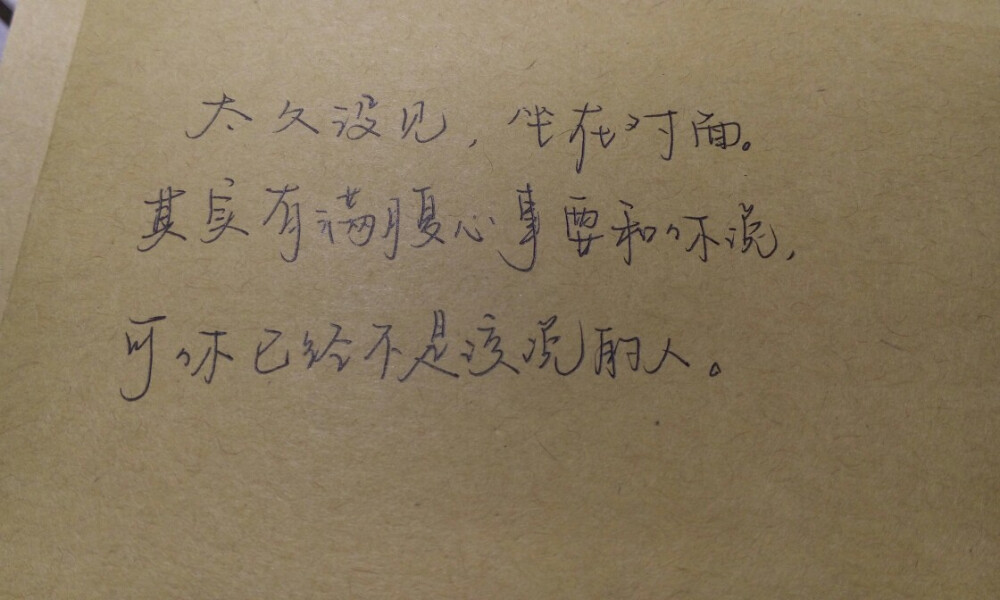 太久没见，坐在对面。
其实有满腹心事要和你说，
可你已经不是该说的人。